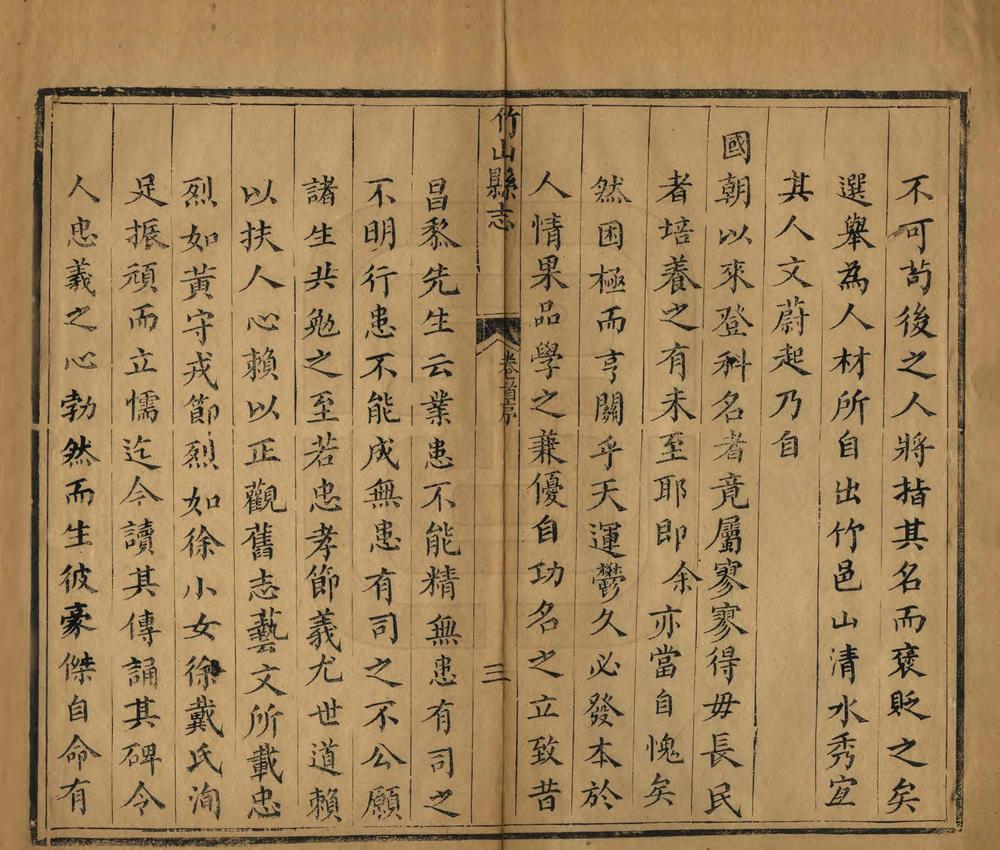 不可苟後之人將指其名而褒貶之矣
選舉為人材所自出竹邑山清水秀宜
其人文蔚起乃自
國朝以來登科名者竟屬寥寥得毋長民
者培養之有未至耶即余亦當自愧矣
然困極而亨關乎天運鬱久必發本於
人情果品學之兼優自功名之立致昔
竹山縣志
卷首序
三
昌黎先生云業患不能精無患有司之
不明行患不能成無患有司之不公願
諸生共勉之至若忠孝節義尤世道賴
以扶人心賴以正觀舊志藝文所載忠
烈如黃守戎節烈如徐小女徐戴氏洵
足振頑而立懦迄今讀其傳誦其碑令
人忠義之心勃然而生彼豪傑自命有